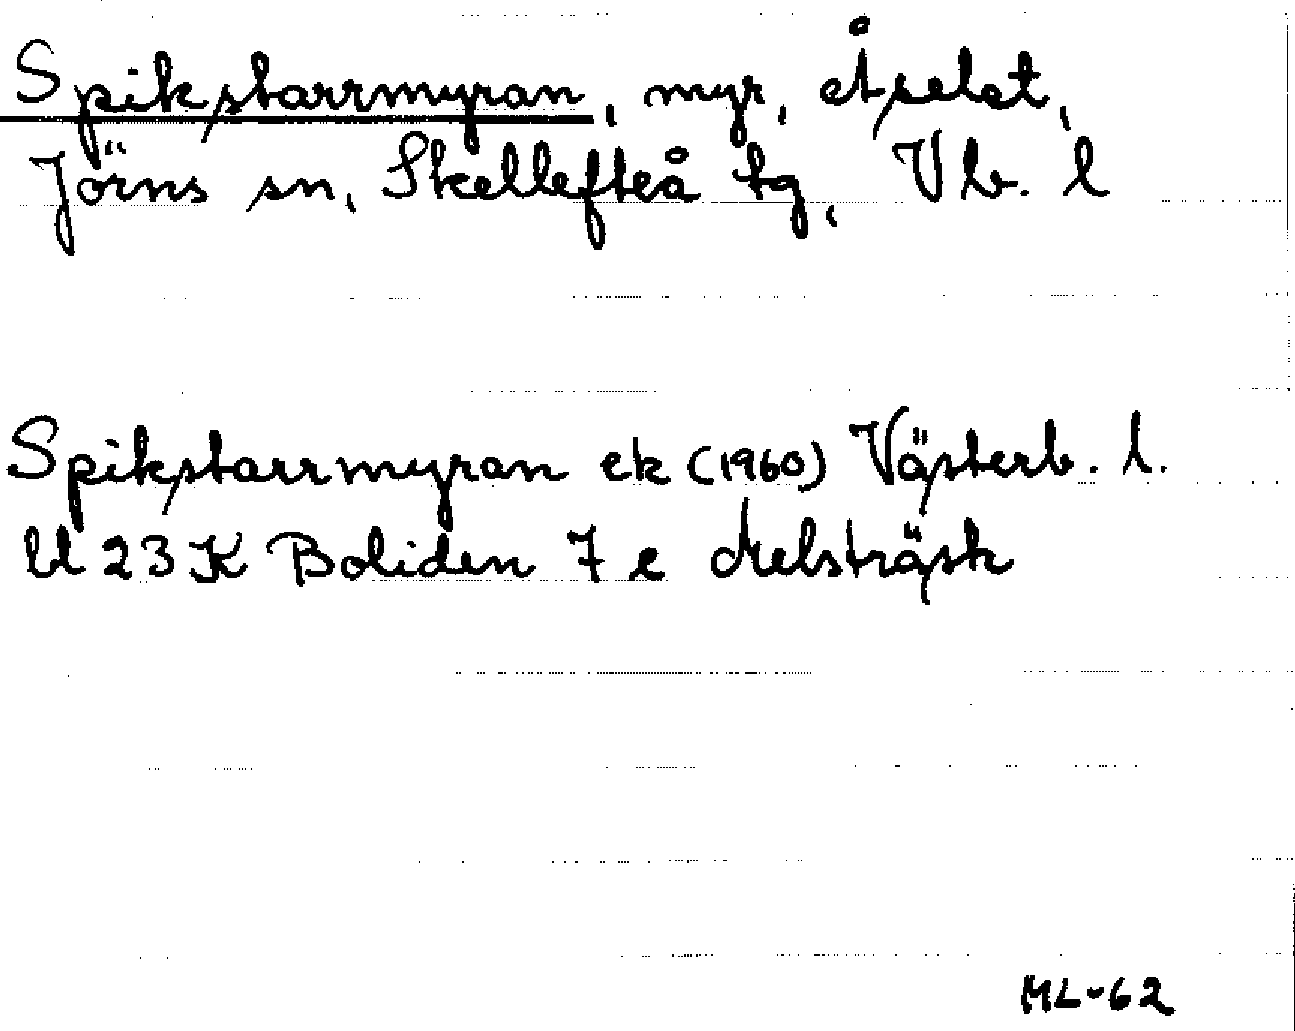 Spikstarrmyran, myr, Åselet,
Jörns sn, Skellefteå tg, Vb. l
Spikstarrmyran ek (1960) Västerb. l.
U 23 K Boliden 7 e Melsträsk
ML-62